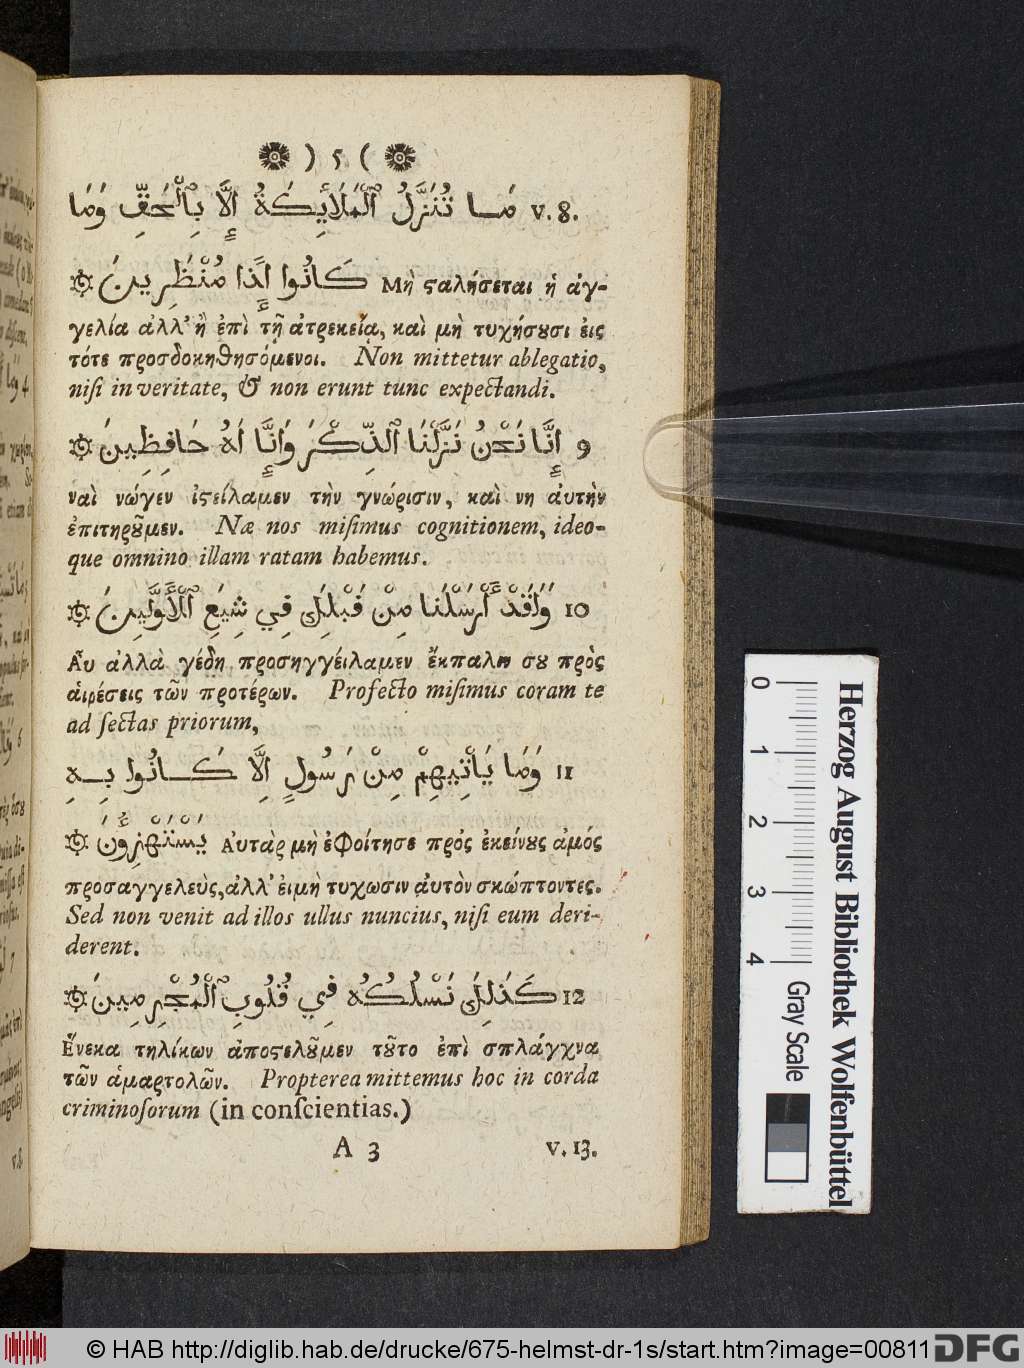 ) 5 (
v. 8. مَا تُنَزَّلُ ٱلْمَلَأَئِكَةُ إِلَّا بِٱلْحَقِّ وَمَا
كَانُوا إِذًا مُنْظَرِينَ Μὴ ϛαλήσεται ἡ ἀγ-
γελία ἀλλ' ἢ ἐπὶ τῇ ἀτρεκείᾳ, καὶ μὴ τυχήσȣσι ἐις
τότε προσδοκηθησόμενοι. Non mittetur ablegatio,
niſi in veritate, & non erunt tunc expectandi.
۹ إِنَّا نَحْنُ نَزَّلْنَا ٱلذِّكْرَ وَإِنَّا لَهُ حَافِظِينَ
ναὶ νώγεν ἰϛείλαμεν τὴν γνώρισιν, καὶ νη ἀυτὴν
ἐπιτηρȣ͂μεν. Næ nos miſimus cognitionem, ideo-
que omnino illam ratam habemus.
10 وَلَقَدْ أَرْسَلْنَا مِنْ قَبْلِكَ فِي شِيَعِ ٱلْأَوَّلِينَ
Ἀυ ἀλλὰ γέδη προσηγγείλαμεν ἔκπαλαι σȣ πρὸς
ἁιρέσεις τῶν προτέρων. Profecto miſimus coram te
ad ſectas priorum,
11 وَمَا يَأْتِيهِمْ مِنْ رَسُولٍ إِلَّا كَانُوا بِهِ
يَسْتَهْزِءُونَ Ἀυτὰρ μὴ ἐφοίτησε πρός ἐκείνȣς ἀμός
προσαγγελεὺς, ἀλλ' ἐιμὴ τυχωσιν ἀυτὸν σκώπτοντες.
Sed non venit ad illos ullus nuncius, niſi eum deri-
derent.
12 كَذَلِكَ نَسْلُكُهُ فِي قُلُوبِ ٱلْمُجْرِمِينَ
Ἕνεκα τηλίκων ἀποϛελȣ͂μεν τȣ͂το ἐπὶ σπλάγχνα
τῶν ἁμαρτολῶν. Propterea mittemus hoc in corda
criminoſorum (in conſcientias.)
A 3 v. 13.
0 1 2 3 4
Gray Scale
Herzog August Bibliothek Wolfenbüttel
© HAB http://diglib.hab.de/drucke/675-helmst-dr-1s/start.htm?image=00811
DFG